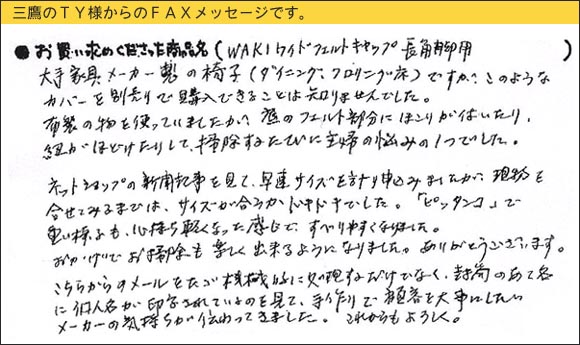 三鷹のＴＹ様からのＦＡＸメッセージです。
●お買い求めくださった商品名(WAKIワイドフェルトキャップ 長角脚用)
大手家具メーカー製の椅子(ダイニング、フロリング床)ですが、このような
カバーを別売りで購入できることは知りませんでした。
布製の物を使っていましたが、底のフェルト部分にほこりがはいたり、
紐がほどけたりして、掃除するたびに主婦の悩みの1つでした。
ネットショップの新聞記事を見て、早速サイズを計り申込みましたが、現物を
合せてみるまでは、サイズが合うかドキドキでした。「ピッタンコ」で
重い椅子も、心持ち軽くなった感じで、すべりやすくなりました。
おかげでお掃除も楽しく出来るようになりました。ありがとうございます。
こちらからのメールをただ機械的に処理するだけでなく、封筒のあて名
に個人名が印字されているのを見て、手作りで顧客を大事にしたい
メーカーの気持ちが伝わってきました。これからもよろしく。